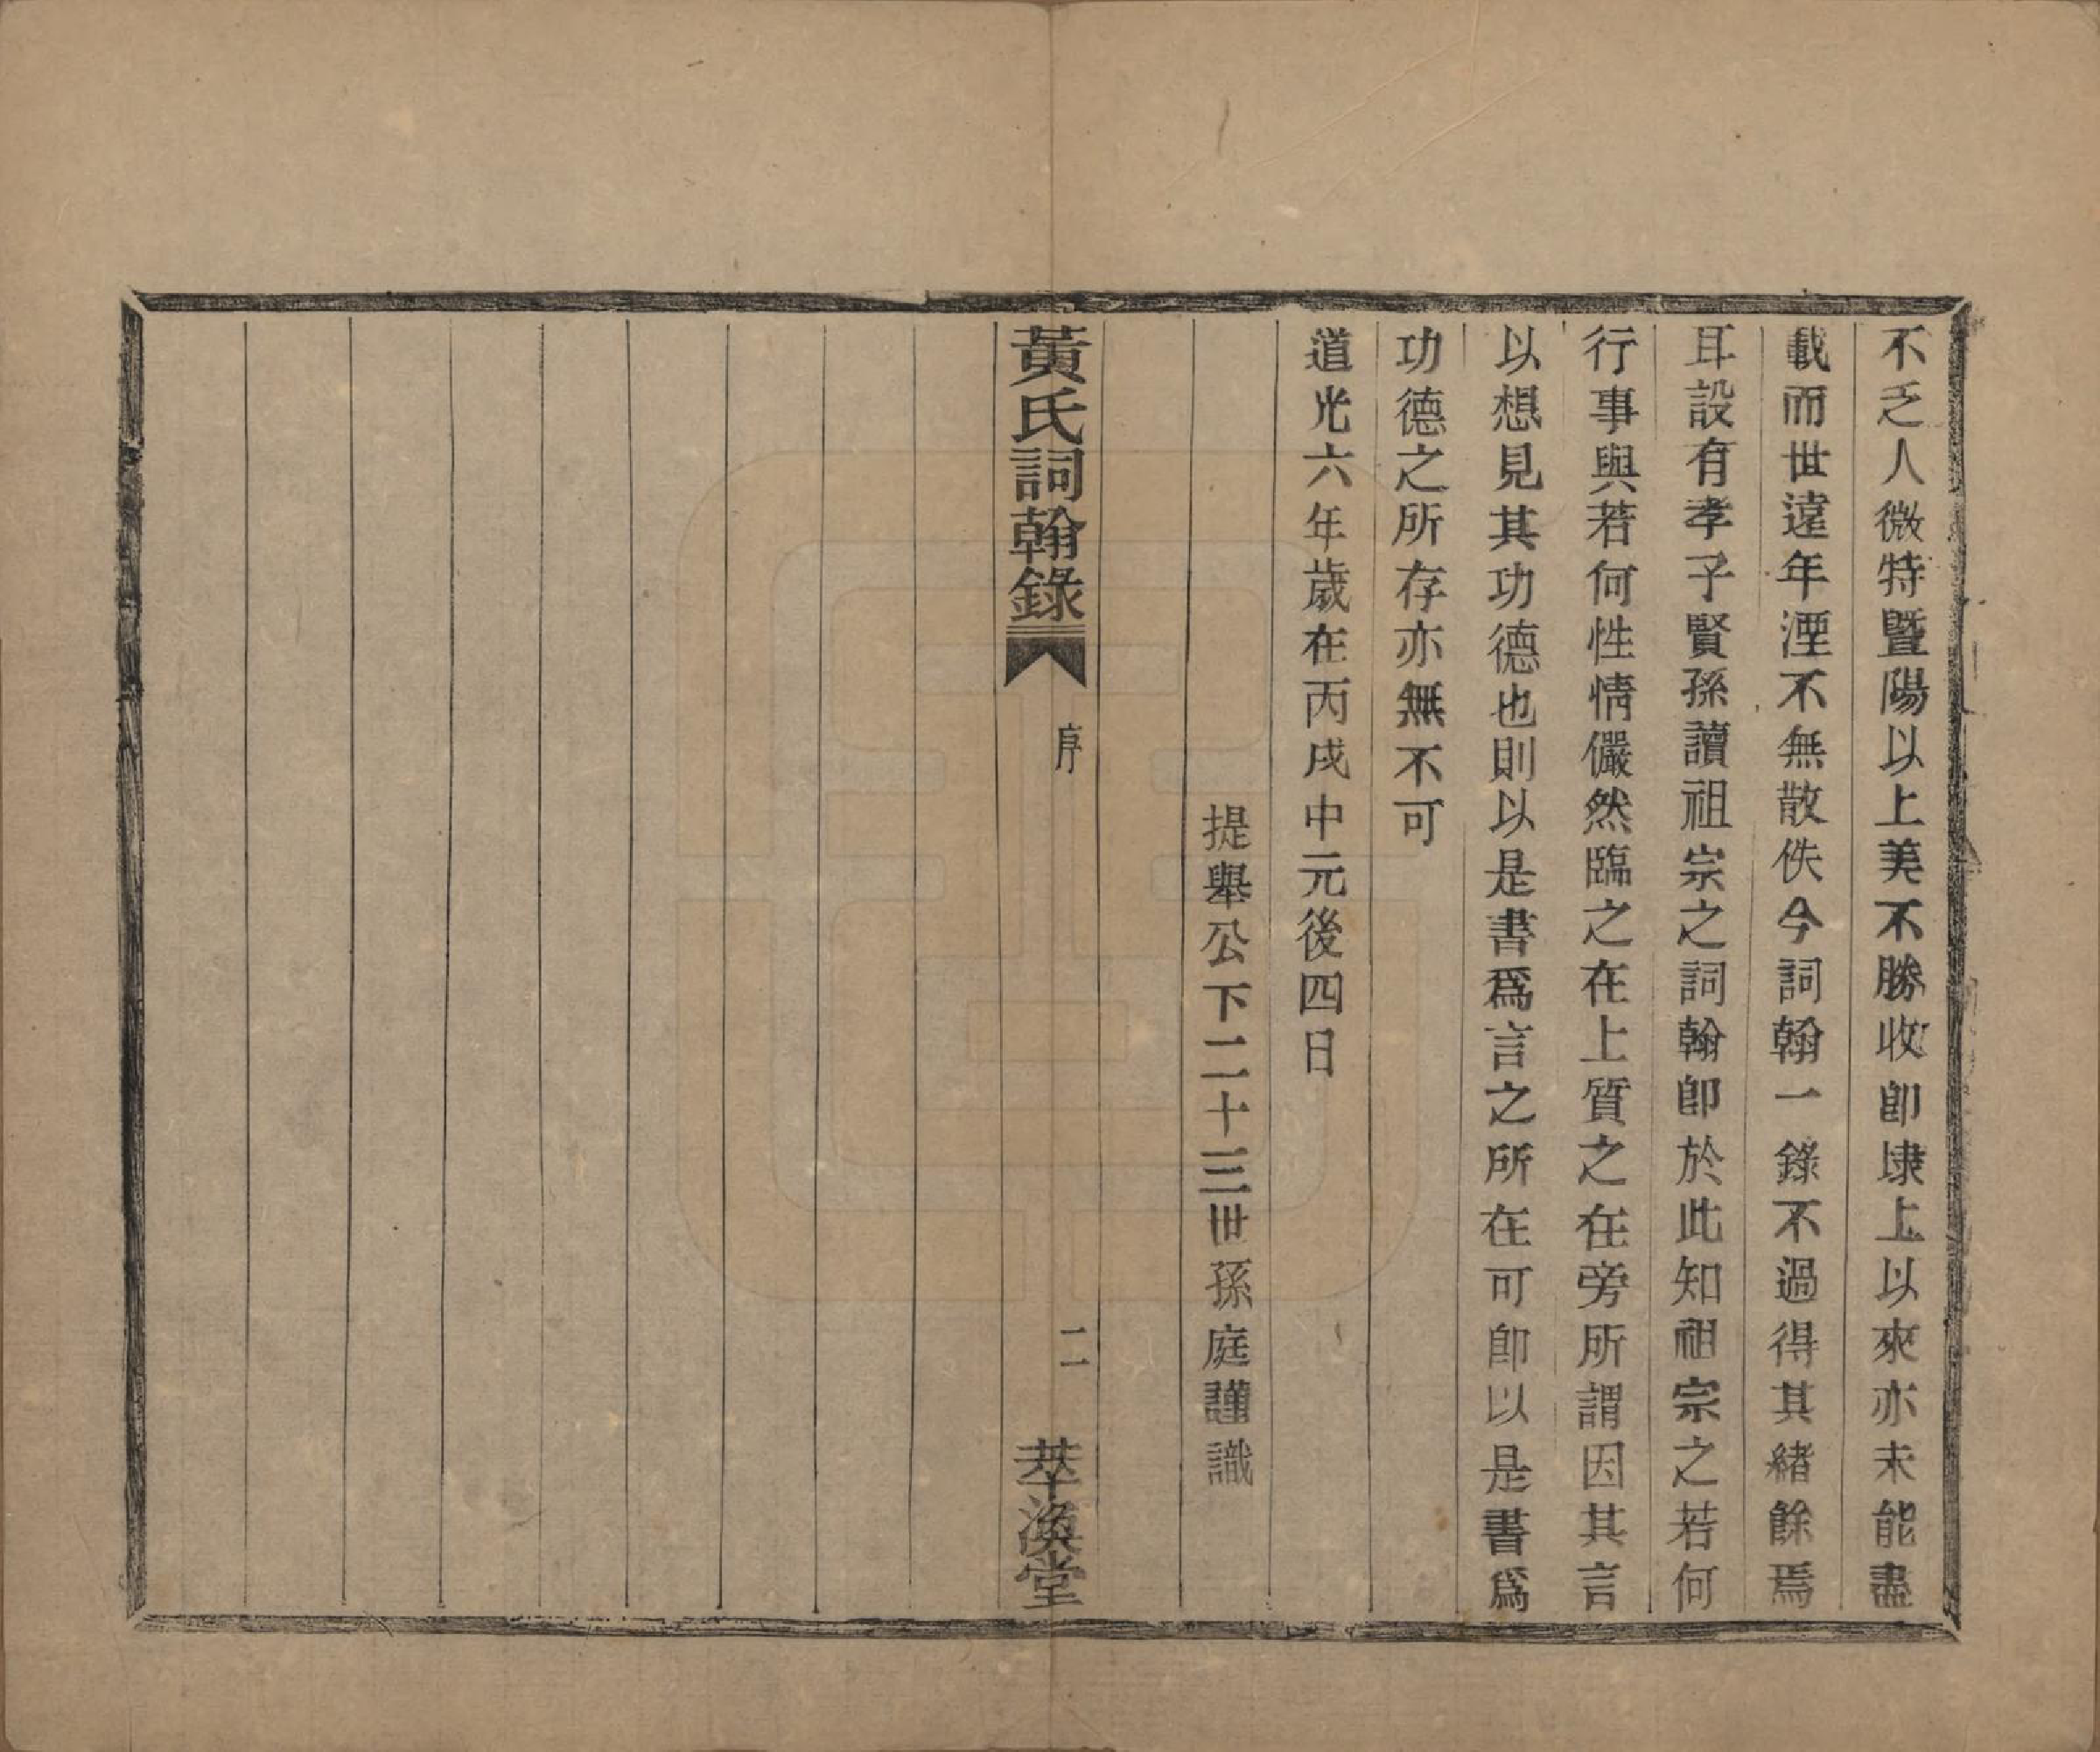 不乏人微特暨陽以上美不勝收卽埭上以來亦未能盡
載而世遠年湮不無散佚今詞翰一錄不過得其緒餘焉
耳設有孝子賢孫讀祖宗之詞翰卽於此知祖宗之若何
行事與若何性情儼然臨之在上質之在旁所謂因其言
以想見其功德也則以是書爲言之所在可卽以是書爲
功德之所存亦無不可
道光六年歲在丙戌中元後四日
提舉公下二十三世孫庭謹識
黃氏詞翰錄
序
二
萃渙堂